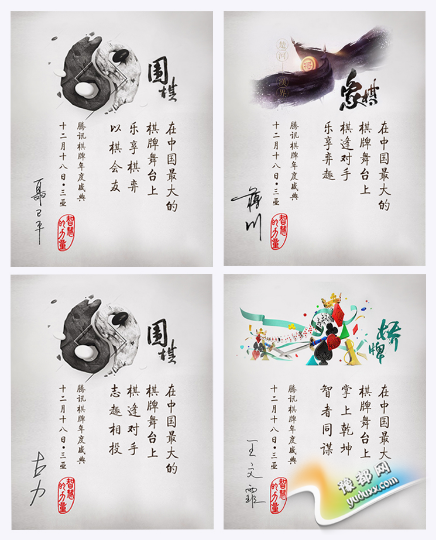 围棋
在中国最大的
棋牌舞台上
乐享棋弈
以棋会友
腾讯棋牌年度盛典
十二月十八日·三亚
智慧的力量
象棋
在中国最大的
棋牌舞台上
棋逢对手
乐享弈趣
腾讯棋牌年度盛典
十二月十八日·三亚
蒋川
智慧的力量
围棋
在中国最大的
棋牌舞台上
棋逢对手
志趣相投
腾讯棋牌年度盛典
十二月十八日·三亚
古力
智慧的力量
桥牌
在中国最大的
棋牌舞台上
掌上乾坤
智者同谋
腾讯棋牌年度盛典
十二月十八日·三亚
王文霏
智慧的力量
yuduxx.com